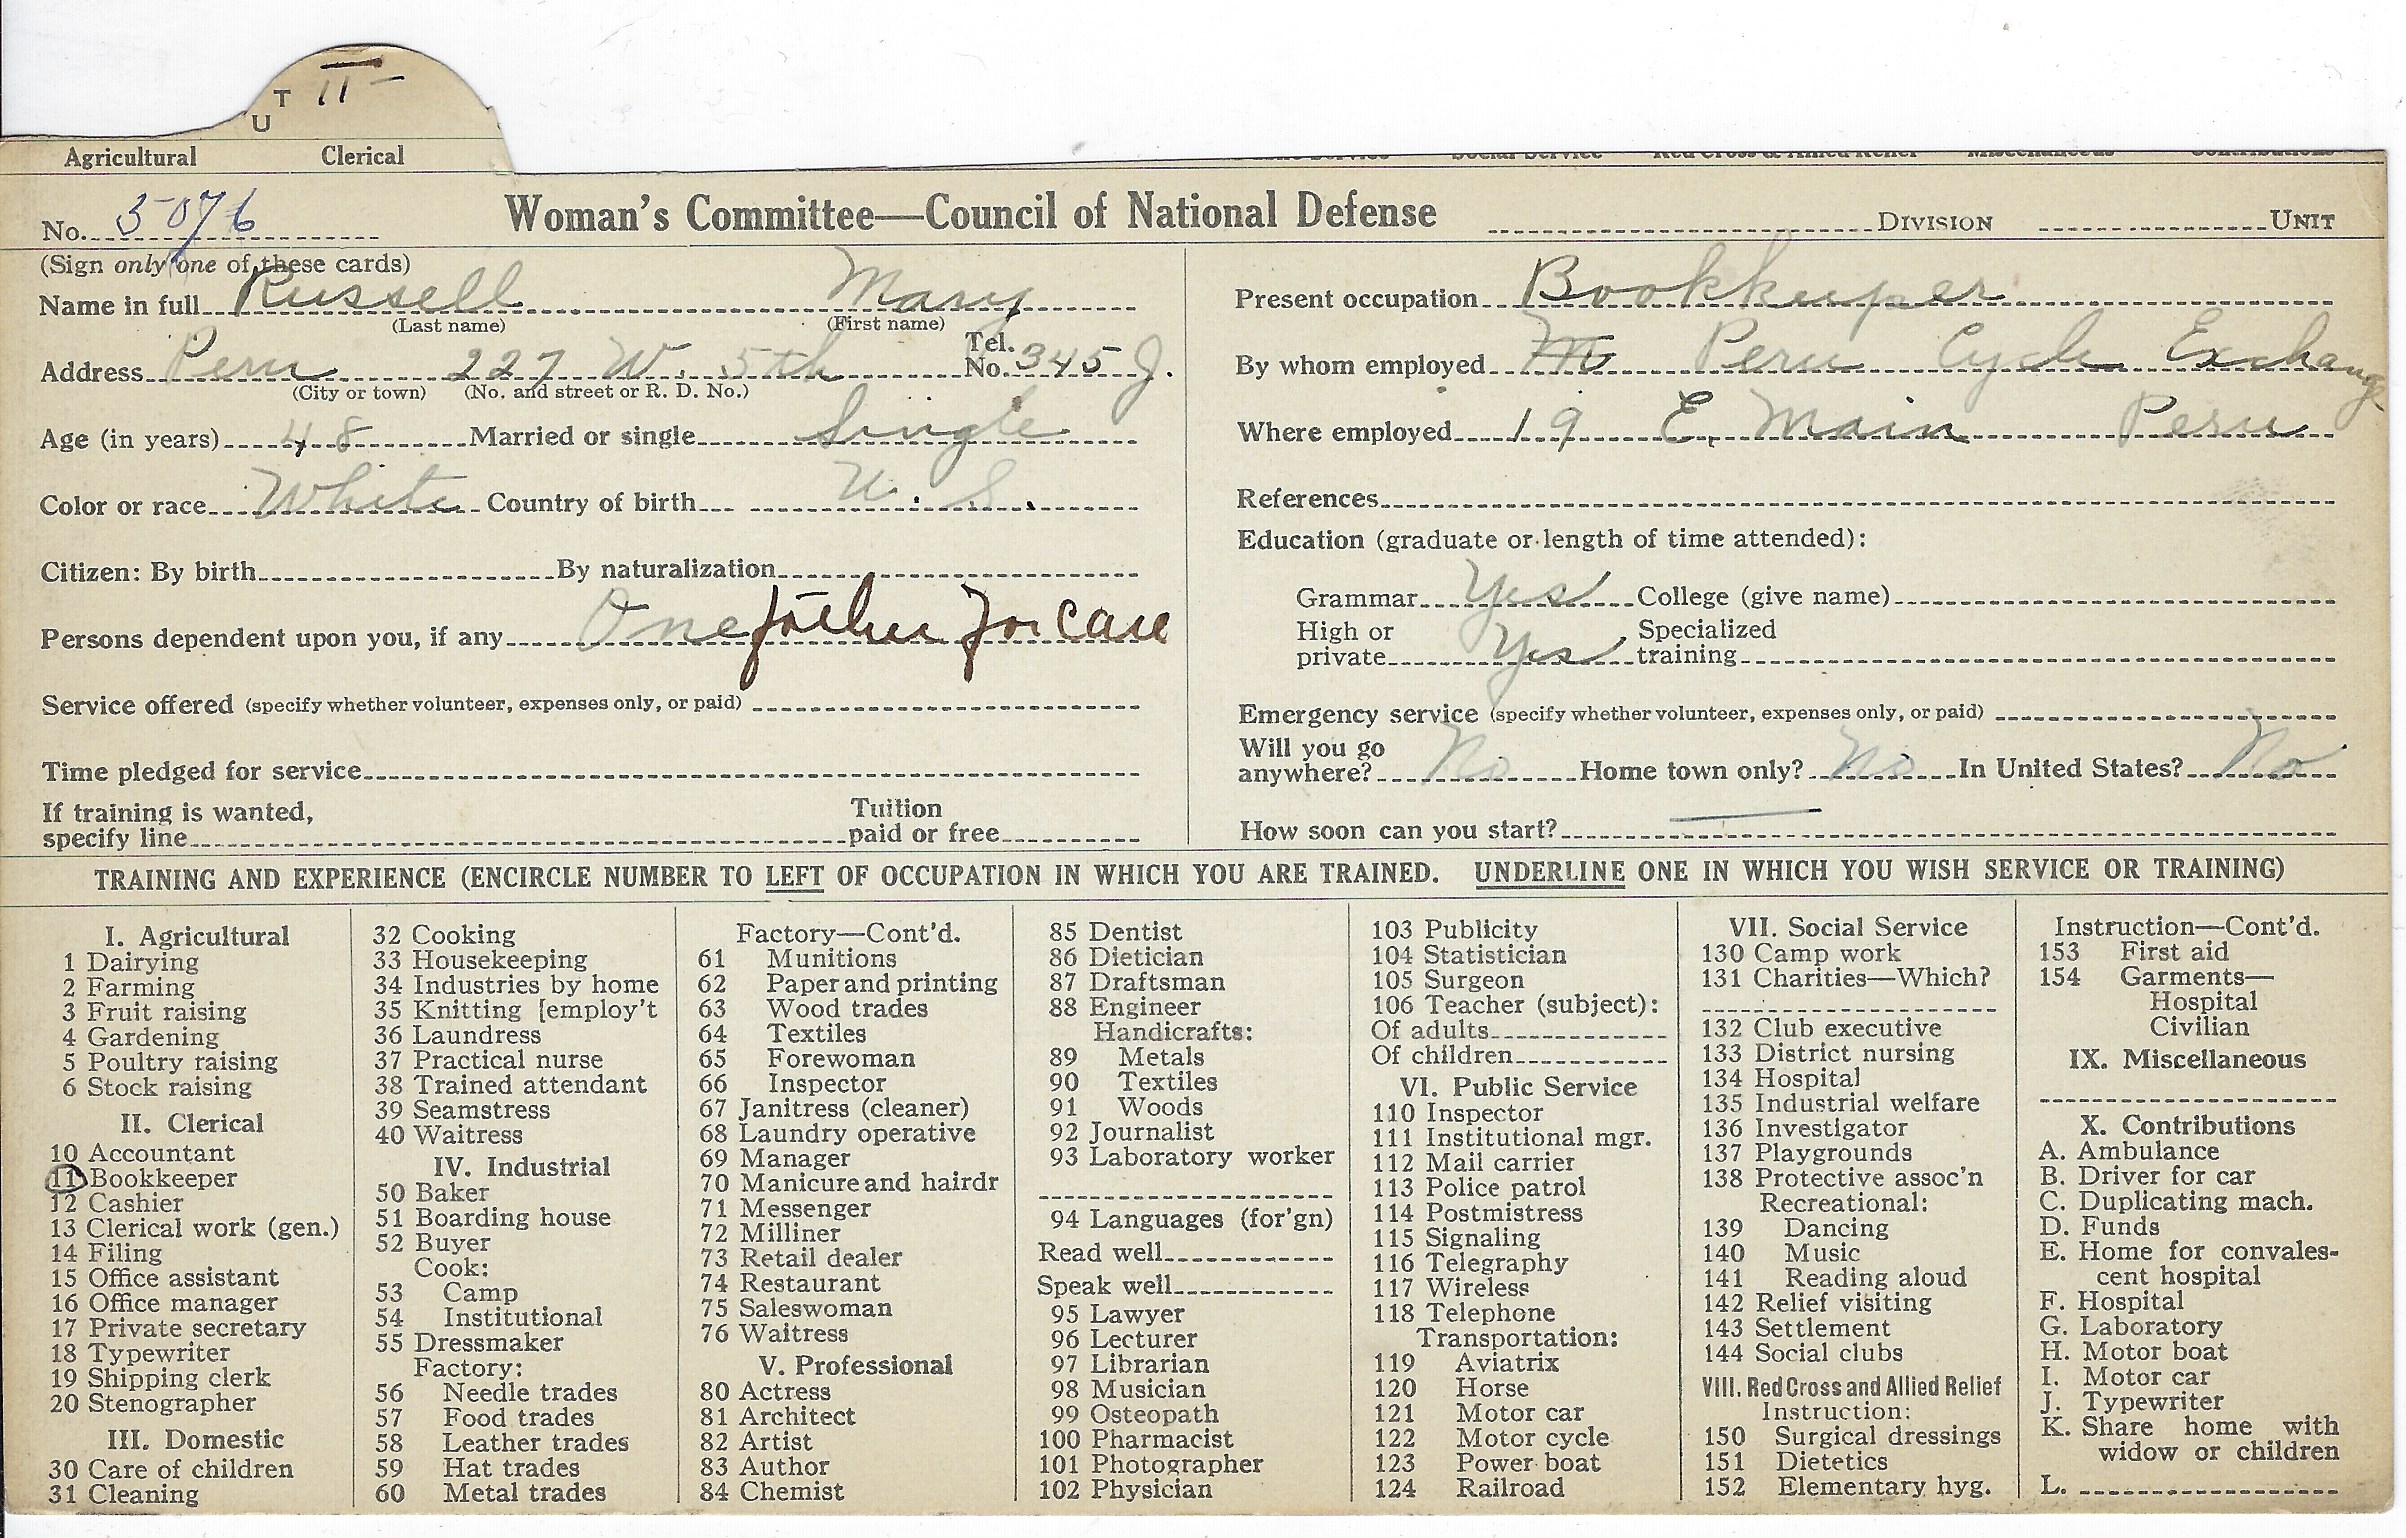 T II –
U
Agricultural Clerical
No. 5076 Woman's Committee—Council of National Defense DIVISION UNIT
(Sign only one of these cards)
Name in full Russell Mary
(Last name) (First name)
Address Peru 227 W. 5th Tel. No. 345 J.
(City or town) (No. and street or R. D. No.)
Age (in years) 48 Married or single Single
Color or race White Country of birth U. S.
Citizen: By birth By naturalization
Persons dependent upon you, if any One father for care
Service offered (specify whether volunteer, expenses only, or paid)
Time pledged for service
If training is wanted,
specify line Tuition paid or free
Present occupation Bookkeeper
By whom employed Peru Cycle Exchange
Where employed 19 E. Main Peru
References
Education (graduate or length of time attended):
Grammar Yes College (give name)
High or private Yes Specialized training
Emergency service (specify whether volunteer, expenses only, or paid)
Will you go anywhere? No Home town only? No In United States? No
How soon can you start? —
TRAINING AND EXPERIENCE (ENCIRCLE NUMBER TO LEFT OF OCCUPATION IN WHICH YOU ARE TRAINED. UNDERLINE ONE IN WHICH YOU WISH SERVICE OR TRAINING)
I. Agricultural
1 Dairying
2 Farming
3 Fruit raising
4 Gardening
5 Poultry raising
6 Stock raising
II. Clerical
10 Accountant
11 Bookkeeper
12 Cashier
13 Clerical work (gen.)
14 Filing
15 Office assistant
16 Office manager
17 Private secretary
18 Typewriter
19 Shipping clerk
20 Stenographer
III. Domestic
30 Care of children
31 Cleaning
32 Cooking
33 Housekeeping
34 Industries by home
35 Knitting [employ't
36 Laundress
37 Practical nurse
38 Trained attendant
39 Seamstress
40 Waitress
IV. Industrial
50 Baker
51 Boarding house
52 Buyer
Cook:
53 Camp
54 Institutional
55 Dressmaker
Factory:
56 Needle trades
57 Food trades
58 Leather trades
59 Hat trades
60 Metal trades
Factory—Cont'd.
61 Munitions
62 Paper and printing
63 Wood trades
64 Textiles
65 Forewoman
66 Inspector
67 Janitress (cleaner)
68 Laundry operative
69 Manager
70 Manicure and hairdr
71 Messenger
72 Milliner
73 Retail dealer
74 Restaurant
75 Saleswoman
76 Waitress
V. Professional
80 Actress
81 Architect
82 Artist
83 Author
84 Chemist
85 Dentist
86 Dietician
87 Draftsman
88 Engineer
Handicrafts:
89 Metals
90 Textiles
91 Woods
92 Journalist
93 Laboratory worker
94 Languages (for'gn)
Read well
Speak well
95 Lawyer
96 Lecturer
97 Librarian
98 Musician
99 Osteopath
100 Pharmacist
101 Photographer
102 Physician
103 Publicity
104 Statistician
105 Surgeon
106 Teacher (subject):
Of adults
Of children
VI. Public Service
110 Inspector
111 Institutional mgr.
112 Mail carrier
113 Police patrol
114 Postmistress
115 Signaling
116 Telegraphy
117 Wireless
118 Telephone
Transportation:
119 Aviatrix
120 Horse
121 Motor car
122 Motor cycle
123 Power boat
124 Railroad
VII. Social Service
130 Camp work
131 Charities—Which?
132 Club executive
133 District nursing
134 Hospital
135 Industrial welfare
136 Investigator
137 Playgrounds
138 Protective assoc'n
Recreational:
139 Dancing
140 Music
141 Reading aloud
142 Relief visiting
143 Settlement
144 Social clubs
VIII. Red Cross and Allied Relief
Instruction:
150 Surgical dressings
151 Dietetics
152 Elementary hyg.
Instruction—Cont'd.
153 First aid
154 Garments—
Hospital
Civilian
IX. Miscellaneous
X. Contributions
A. Ambulance
B. Driver for car
C. Duplicating mach.
D. Funds
E. Home for convales-
cent hospital
F. Hospital
G. Laboratory
H. Motor boat
I. Motor car
J. Typewriter
K. Share home with
widow or children
L.